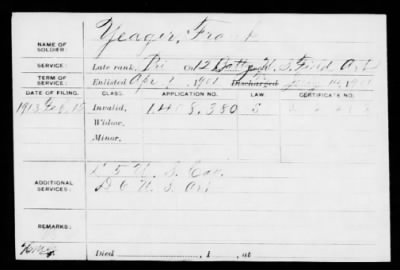 Yeager, Frank
NAME OF SOLDIER:
SERVICE: Late rank, Pri Co. 12 Batty U. S. Field Art
TERM OF SERVICE: Enlisted Apr 1, 1901 Discharged 1901
DATE OF FILING. CLASS. APPLICATION NO. LAW. CERTIFICATE NO.
1913 Feb. 15 Invalid, 1.408.380 S
Widow,
Minor,
L 5 U. S. Cav.
ADDITIONAL SERVICES: D 6 U. S. Art
REMARKS:
Died , 1 , at